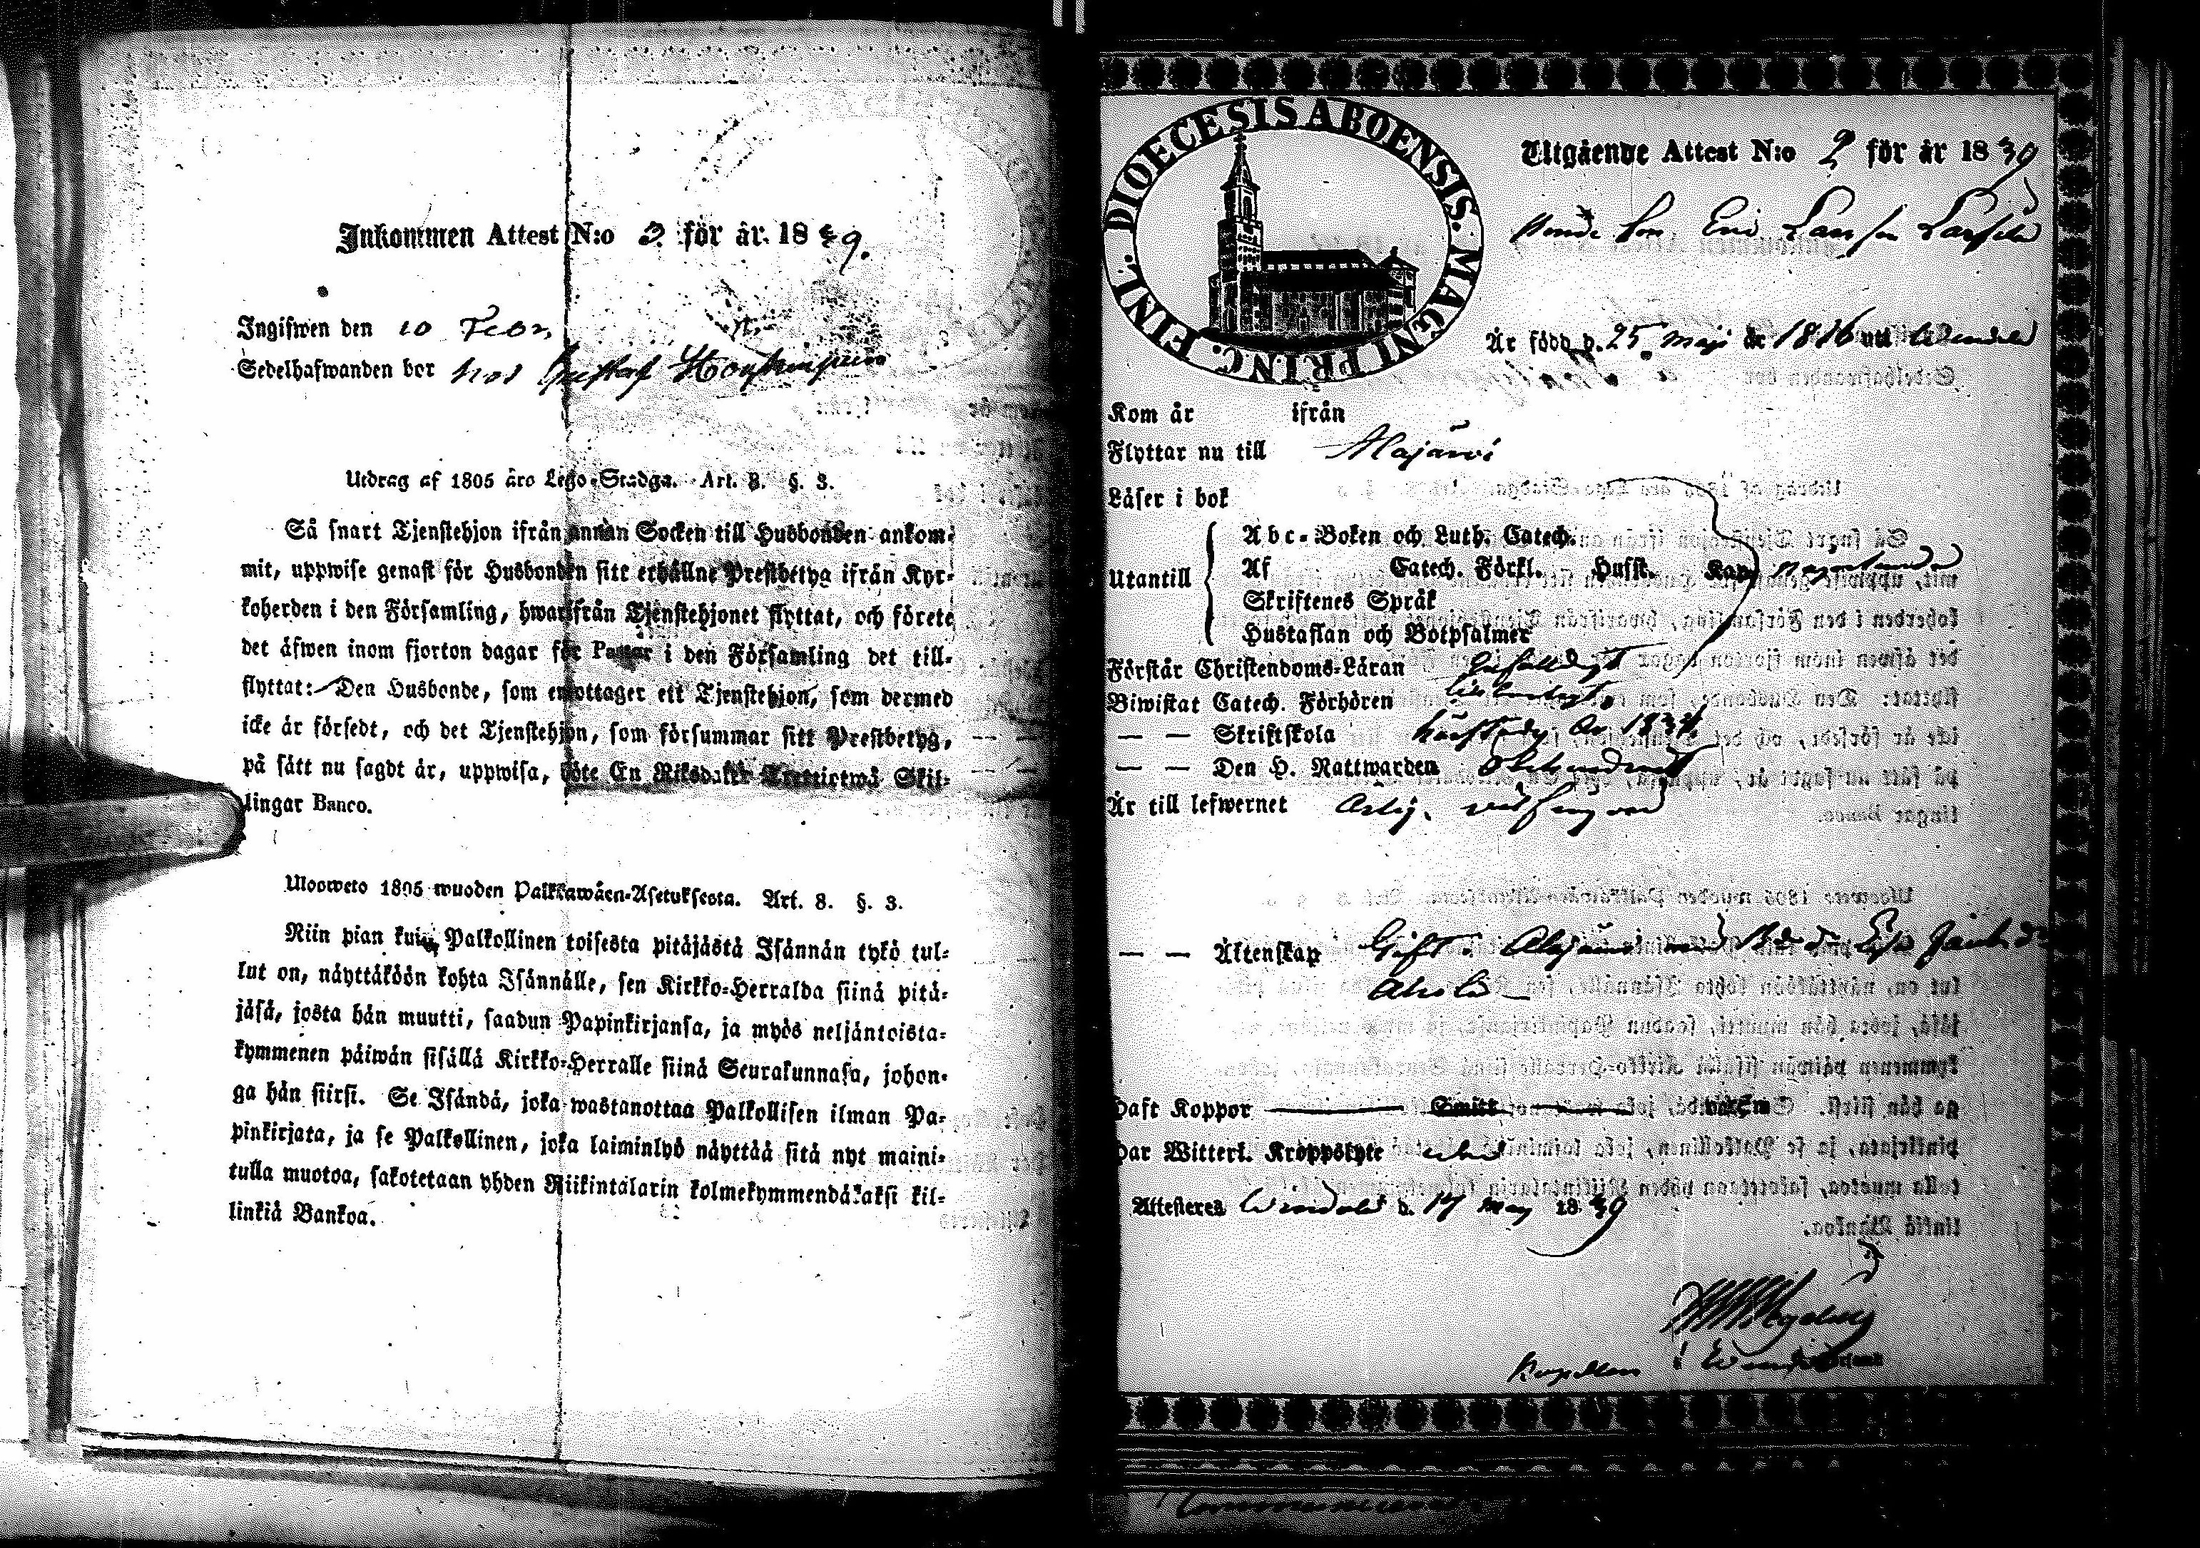 Inkommen Attest N:o 3. för år. 1839.
Ingifwen den 10 Febr.
Sedelhafwanden bor hos Gustaf
Utdrag af 1805 åro Lego-Stadga. Art. 8. §. 3.
Så snart Tjenstehjon ifrån annan Socken till Husbonden ankom-
mit, uppwise genast för Husbonden sitt erhållne Prestbetyg ifrån Kyr-
koherden i den Församling, hwarifrån Tjenstehjonet flyttat, och förete
det äfwen inom fjorton dagar för Pastor i den Församling det till-
flyttat: Den Husbonde, som emottager ett Tjenstehjon, som dermed
icke är försedt, och det Tjenstehjon, som försummar sitt Prestbetyg,
på sätt nu sagdt är, uppwisa, böte En Riksdaler Trettiotwå Skil-
lingar Banco.
Uloosweto 1805 wuoden Palkkawäen-Asetuksesta. Art. 8. §. 3.
Niin pian kuin Palkollinen toisesta pitäjästä Isännän tykö tul-
lut on, näyttäköön kohta Isännälle, sen Kirkko-Herralda siinä pitä-
jäsä, josta hän muutti, saadun Papinkirjansa, ja myös neljäntoista-
kymmenen päiwän sisällä Kirkko-Herralle siinä Seurakunnasa, johon-
ga hän siirsi. Se Isändä, joka wastanottaa Palkollisen ilman Pa-
pinkirjata, ja se Palkollinen, joka laiminlyö näyttää sitä nyt maini-
tulla muotoa, sakotetaan yhden Riikintalarin kolmekymmendäkaksi kil-
linkiä Bankoa.
FINL. DIOECESIS ABOENSIS. MAGNI PRINC.
Utgående Attest N:o 2 för år 1839
Bonde Son Eric Larsson
Är född d. 25 Maji år 1816 uti
Kom år ifrån
Flyttar nu till Alajärvi
Läser i bok
Utantill
Abc-Boken och Luth. Catech.
Af Catech. Förkl. Husst. Kap
Skriftenes Språk
Hustaflan och Botpsalmer
Förstår Christendoms-Läran
Biwistat Catech. Förhören
— — Skriftskola
— — Den H. Nattwarden
Är till lefwernet
— — Äktenskap Gift i Alajärvi med
Haft Koppor Smitt
Har Witterl. Kroppslyte
Attesteras d. 14 May 1839
Kapellan i